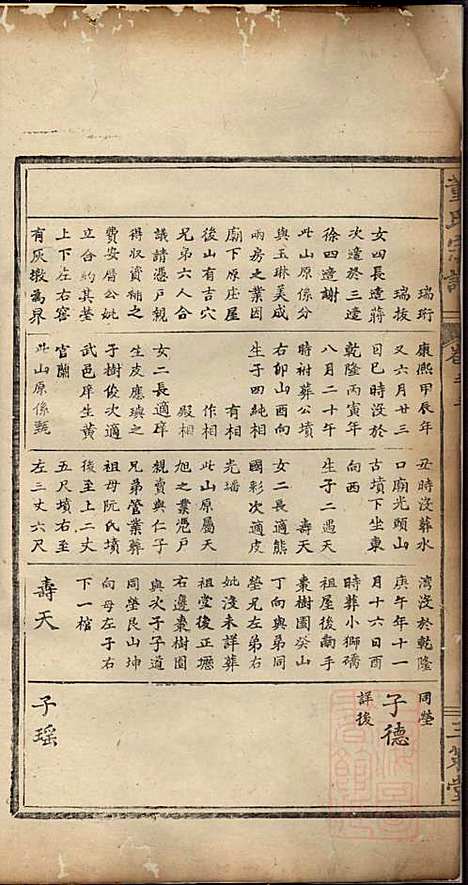 董氏宗譜
卷之
三策堂
瑞珩
瑞拔
女四長適蔣
次適於三適
徐四適謝
此山原係分
與玉琳美成
兩房之業因
廟下原庄屋
後山有吉穴
兄弟六人合
議請憑戶親
得收資補之
費安厝公妣
立合約其塋
上下左右窖
有灰墩為界
康熙甲辰年
又六月廿三
日巳時沒於
乾隆丙寅年
八月二十午
時祔葬公墳
右卯山酉向
生子四純相
有相
作相
殿相
女二長適庠
生皮應璵之
子樹俊次適
武邑庠生黃
官蘭
此山原係甄
丑時沒葬水
口廟光頭山
古墳下坐東
向西
生子二遇天
壽天
女二長適熊
國彩次適皮
光墦
此山原屬天
旭之業憑戶
親賣與仁子
兄弟營業葬
祖母阮氏墳
後至上二丈
五尺墳右至
左三丈六尺
灣沒於乾隆
庚午年十一
月十六日酉
時葬小獅礄
祖屋後崗手
棗樹園癸山
丁向與弟同
塋兄左弟右
妣沒未詳葬
祖堂後正壢
右邊棗樹園
與次子子道
同塋艮山坤
向母左子右
下一棺
壽天
同塋
子德
詳後
子瑤